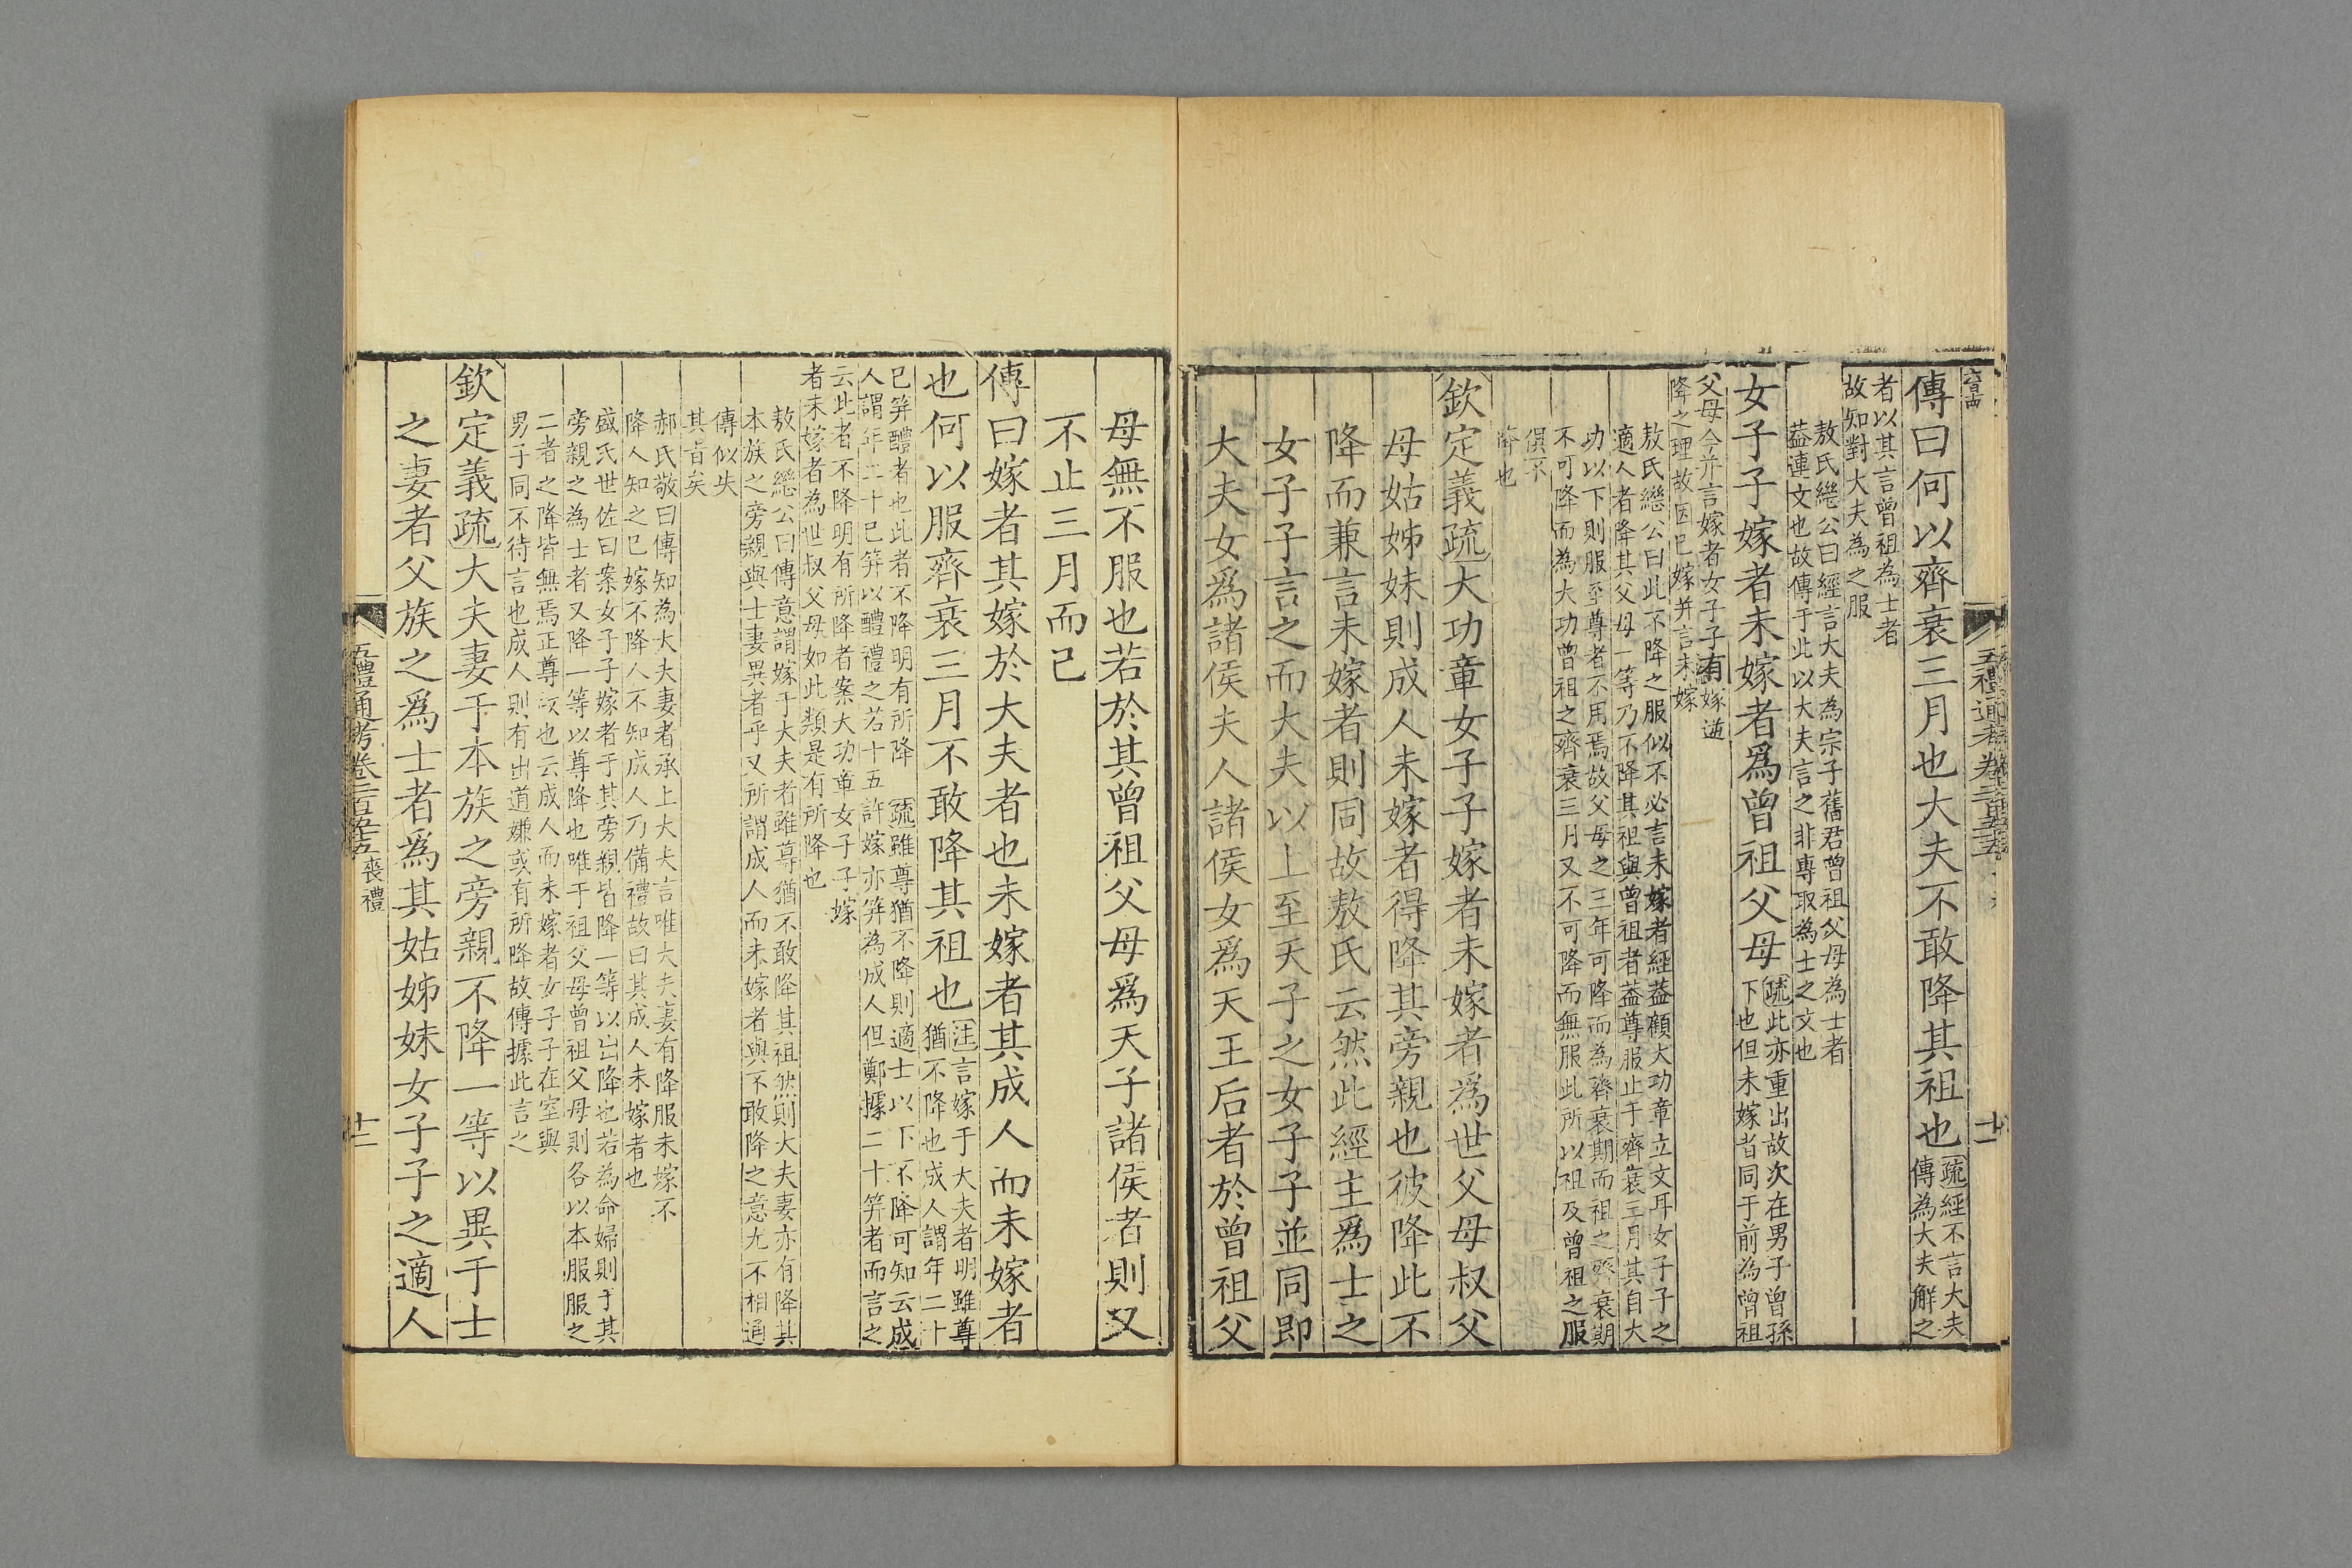 傳曰何以齊衰三月也大夫不敢降其祖也疏經不言大夫
傳為大夫解之
者以其言曾祖為士者
故知對大夫為之服
敖氏繼公曰經言大夫為宗子舊君曾祖父母為士者
葢連文也故傳于此以大夫言之非專取為士之文也
女子子嫁者未嫁者爲曾祖父母疏此亦重出故次在男子曾孫
下也但未嫁者同于前為曾祖
父母今并言嫁者女子子有嫁適
降之理故因已嫁并言未嫁
敖氏繼公曰此不降之服似不必言未嫁者經葢顧大功章立文耳女子子之
適人者降其父母一等乃不降其祖與曾祖者葢尊服止于齊衰三月其自大
功以下則服至尊者不用焉故父母之三年可降而為齊衰期而祖之齊衰期
不可降而為大功曾祖之齊衰三月又不可降而無服此所以祖及曾祖之服
俱不
降也
欽定義疏大功章女子子嫁者未嫁者為世父母叔父
母姑姊妹則成人未嫁者得降其旁親也彼降此不
降而兼言未嫁者則同故敖氏云然此經主爲士之
女子子言之而大夫以上至天子之女子子並同即
大夫女爲諸侯夫人諸侯女爲天王后者於曾祖父
五禮通考卷二百五十五
十一
母無不服也若於其曾祖父母爲天子諸侯者則又
不止三月而已
傳曰嫁者其嫁於大夫者也未嫁者其成人而未嫁者
也何以服齊衰三月不敢降其祖也注言嫁于大夫者明雖尊
猶不降也成人謂年二十
已筓醴者也此者不降明有所降 疏雖尊猶不降則適士以下不降可知云成
人謂年二十已筓以醴禮之若十五許嫁亦筓為成人但鄭據二十筓者而言之
云此者不降明有所降者案大功章女子子嫁
者未嫁者為世叔父母如此類是有所降也
敖氏繼公曰傳意謂嫁于大夫者雖尊猶不敢降其祖然則大夫妻亦有降其
本族之旁親與士妻異者乎又所謂成人而未嫁者與不敢降之意尤不相通
傳似失
其旨矣
郝氏敬曰傳知為大夫妻者承上大夫言唯大夫妻有降服未嫁不
降人知之已嫁不降人不知成人乃備禮故曰其成人未嫁者也
盛氏世佐曰案女子子嫁者于其旁親皆降一等以出降也若為命婦則于其
旁親之為士者又降一等以尊降也唯于祖父母曾祖父母則各以本服服之
二者之降皆無焉正尊故也云成人而未嫁者女子子在室與
男子同不待言也成人則有出道嫌或有所降故傳據此言之
欽定義疏大夫妻于本族之旁親不降一等以異于士
之妻者父族之爲士者爲其姑姊妹女子子之適人
五禮通考卷二百五十五 喪禮
十二